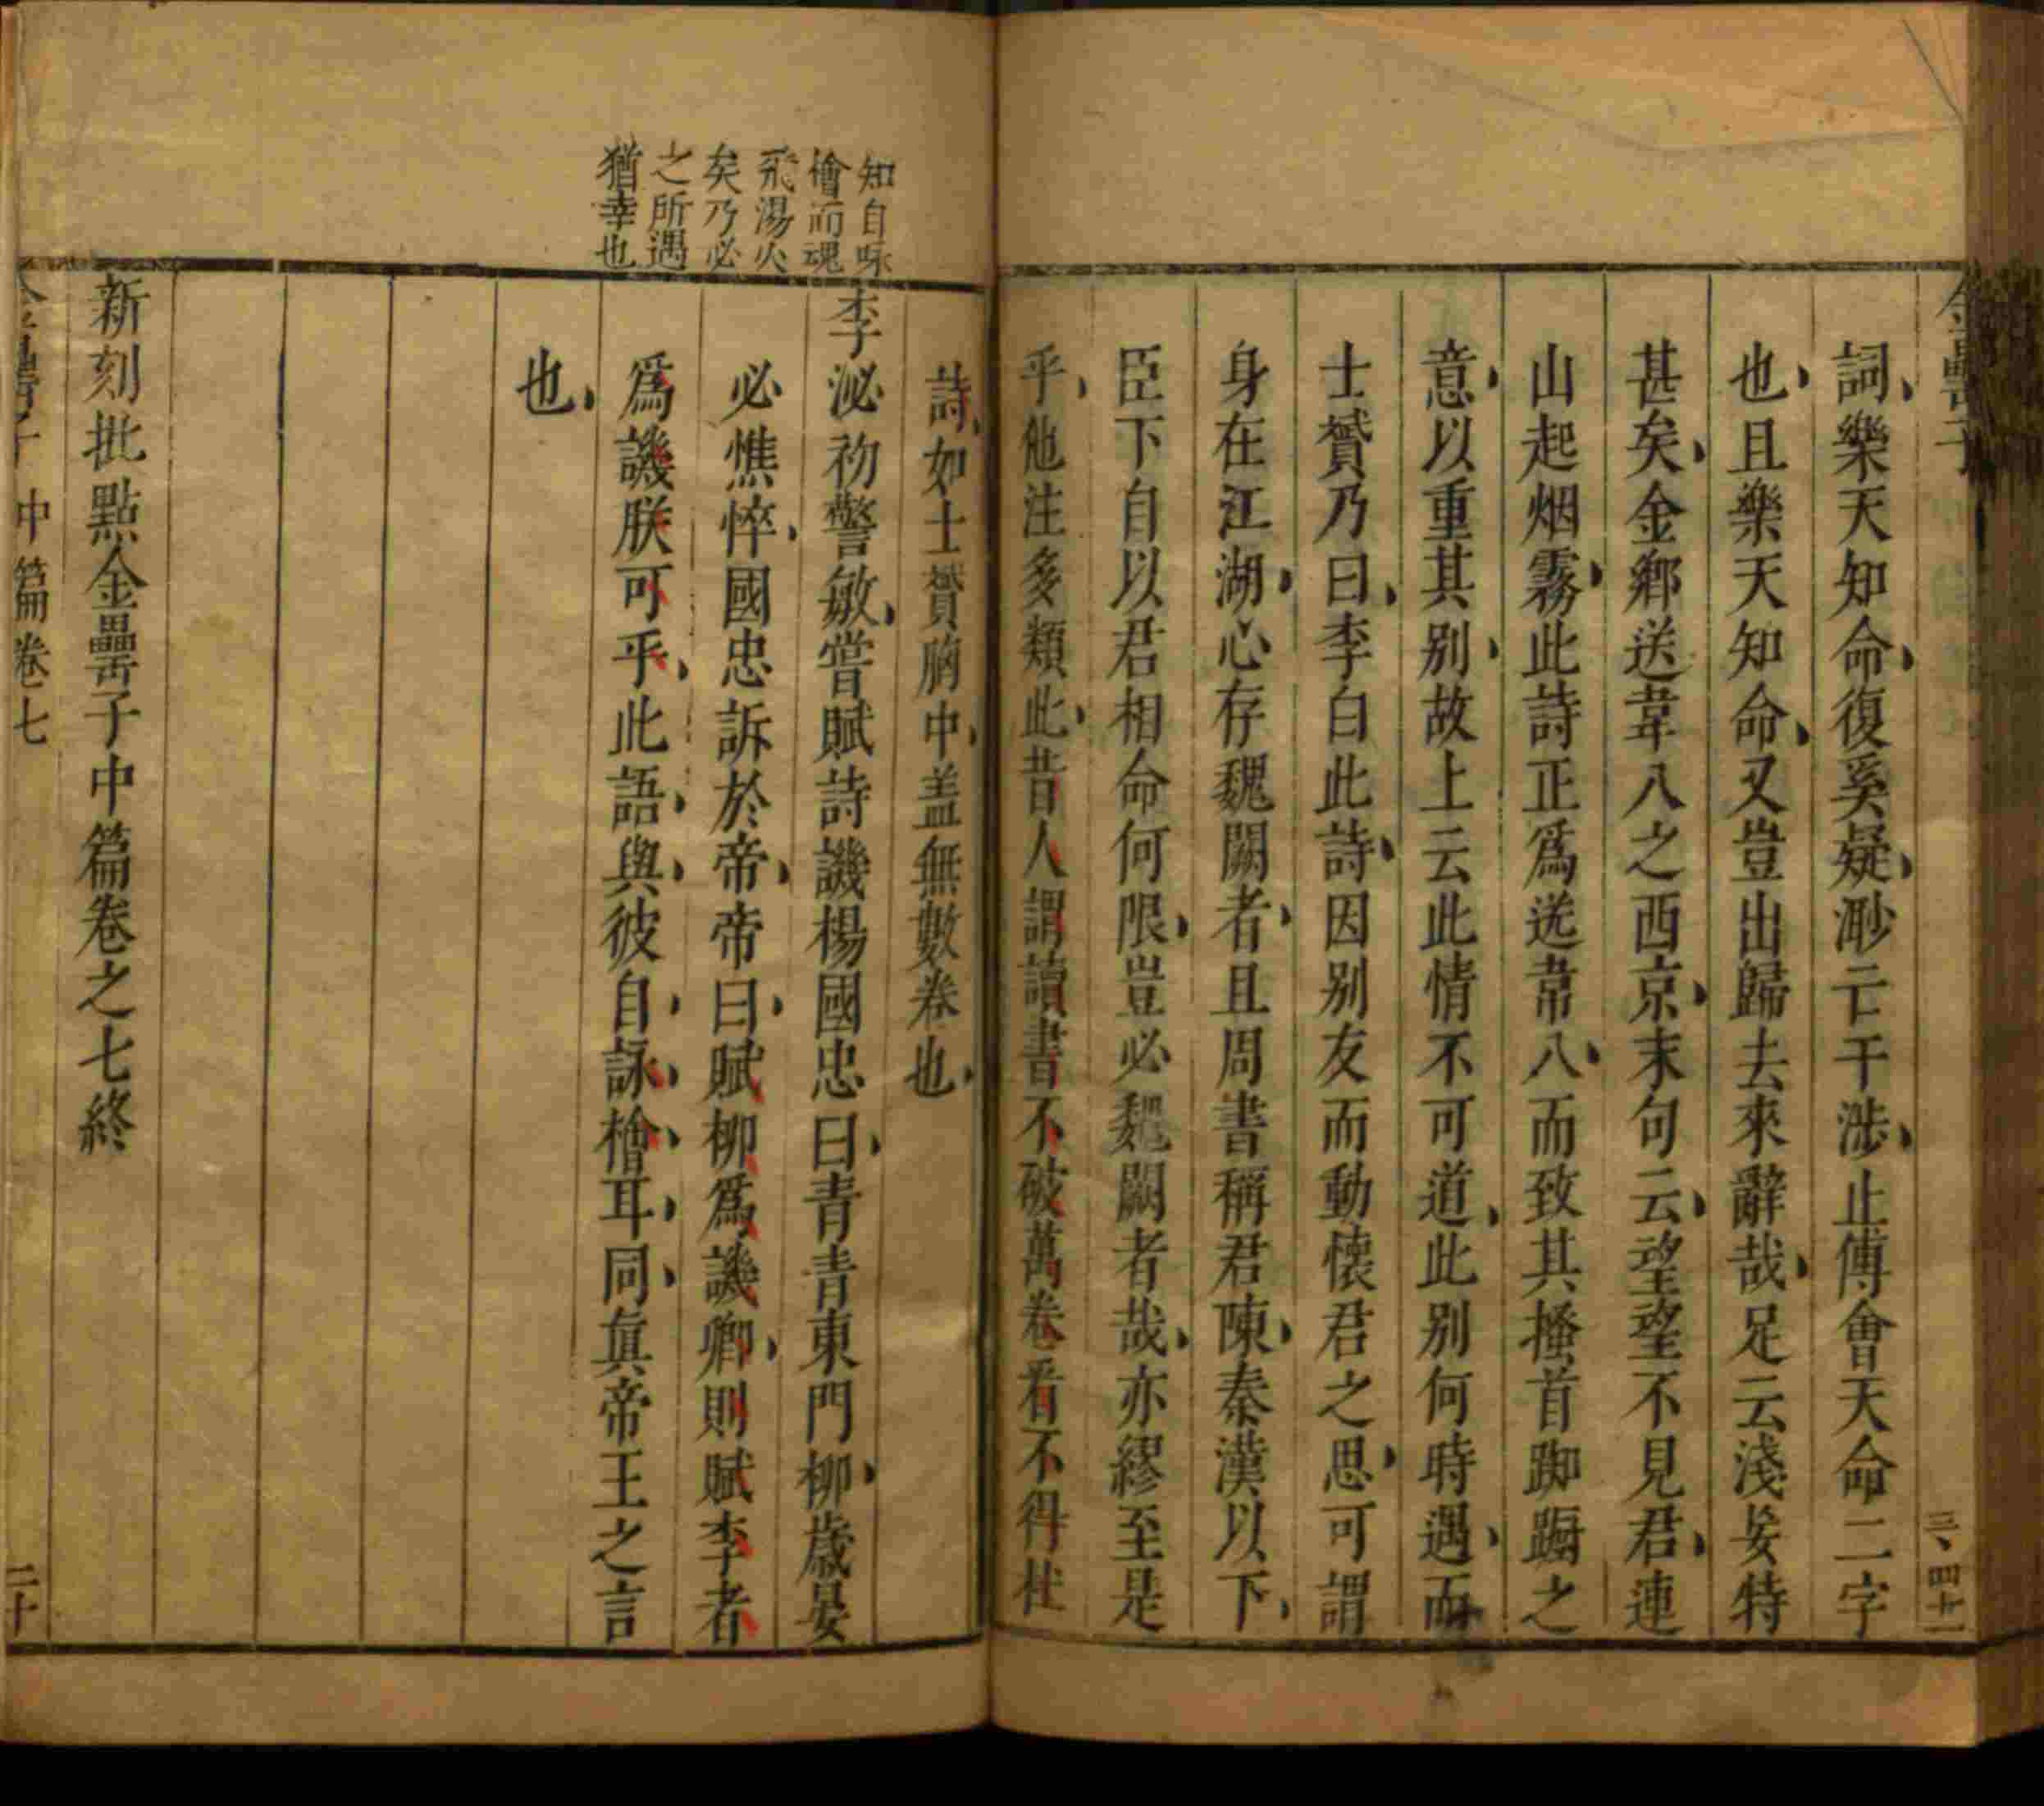 金罍子
詞樂天知命復奚疑渺亡干涉止傅會天命二字
也且樂天知命又豈出歸去來辭哉足云淺妄特
甚矣金鄉送韋八之西京末句云望望不見君連
山起烟霧此詩正爲送韋八而致其搔首踟蹰之
意以重其別故上云此情不可道此別何時遇而
士贇乃曰李白此詩因別友而動懷君之思可謂
身在江湖心存魏闕者且周書稱君陳秦漢以下
臣下自以君相命何限豈必魏闕者哉亦繆至是
乎他注多類此昔人謂讀書不破萬卷看不得杜
詩如士贇胸中盖無數卷也
知自咏
檜而魂
飛湯火
矣乃必
之所遇
猶幸也
李泌初警敏嘗賦詩譏楊國忠曰青青東門柳歲晏
必憔悴國忠訴於帝帝曰賦柳爲譏卿則賦李者
爲譏朕可乎此語與彼自詠檜耳同眞帝王之言
也
新刻批點金罍子中篇卷之七終
中篇卷七
二十